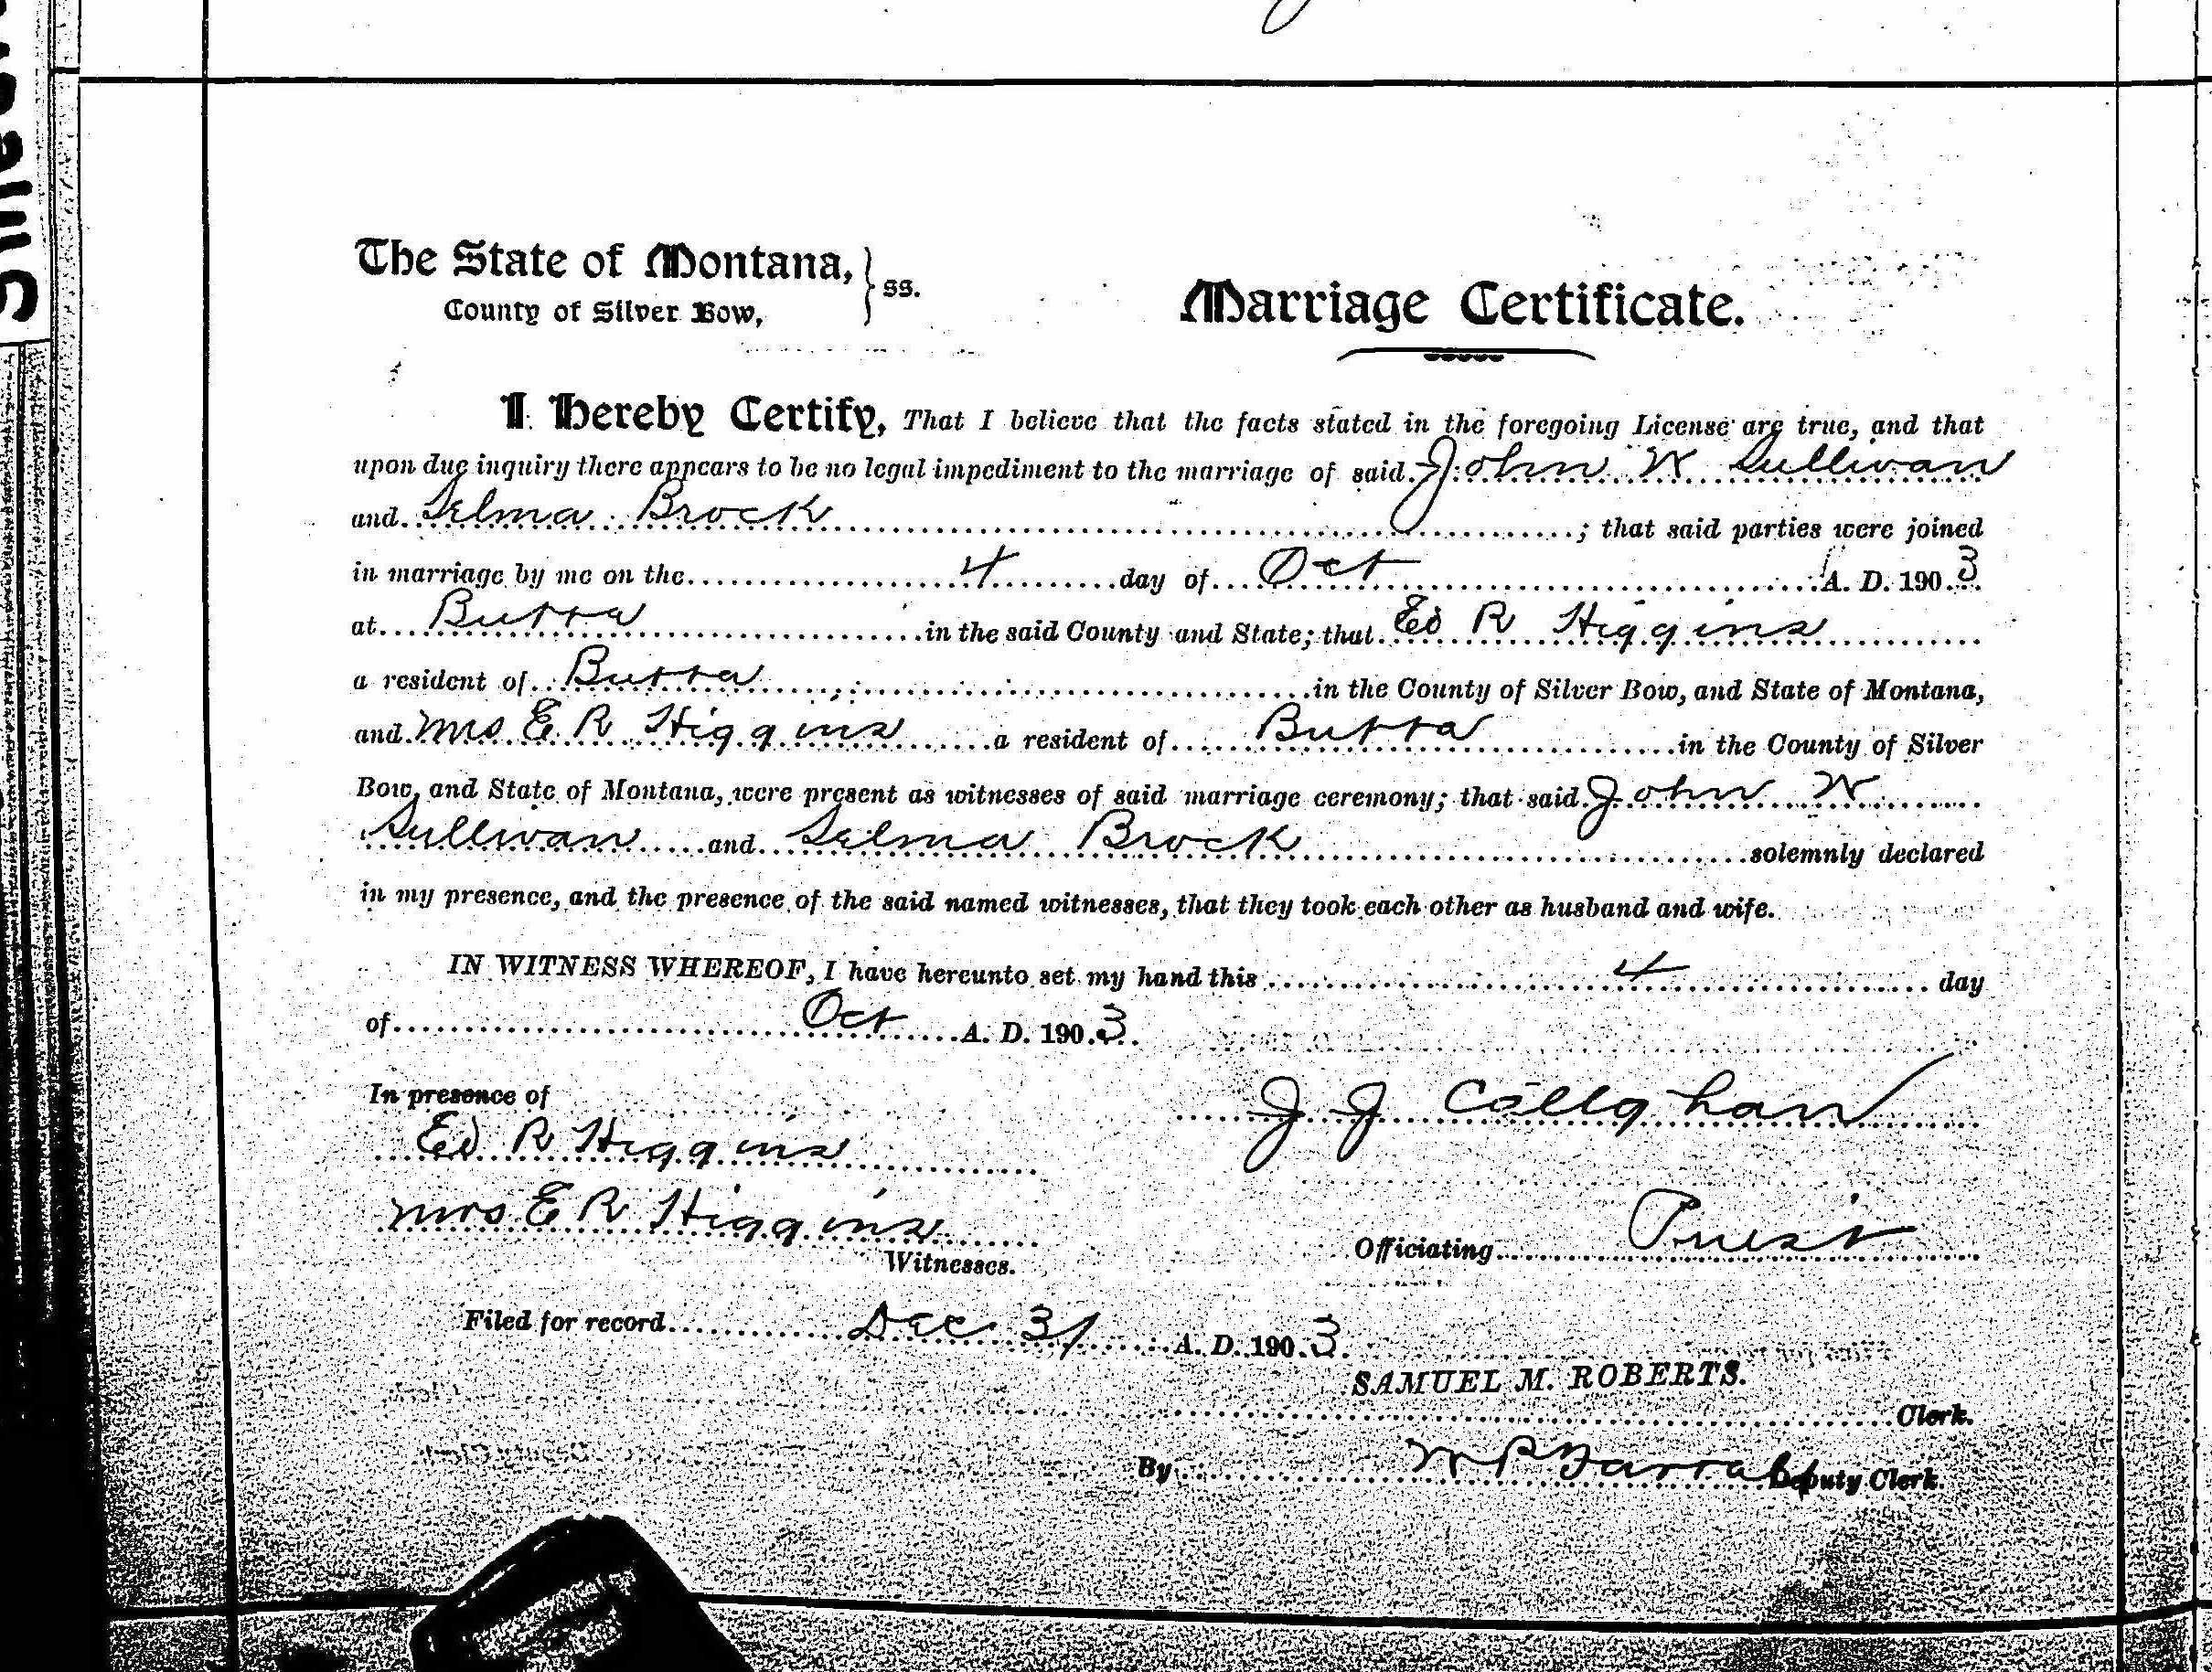 The State of Montana, } ss.
County of Silver Bow,
Marriage Certificate.
I Hereby Certify, That I believe that the facts stated in the foregoing License are true, and that
upon due inquiry there appears to be no legal impediment to the marriage of said John W Sullivan
and Selma Brock ; that said parties were joined
in marriage by me on the 4 day of Oct A. D. 1903
at Butte in the said County and State; that Ed R Higgins
a resident of Butte in the County of Silver Bow, and State of Montana,
and Mrs E R Higgins a resident of Butte in the County of Silver
Bow, and State of Montana, were present as witnesses of said marriage ceremony; that said John W
Sullivan and Selma Brock solemnly declared
in my presence, and the presence of the said named witnesses, that they took each other as husband and wife.
IN WITNESS WHEREOF, I have hereunto set my hand this 4 day
of Oct A. D. 1903.
In presence of
J J Callghan
Ed R Higgins
Mrs E R Higgins
Witnesses.
Officiating Priest
Filed for record Dec 31 A. D. 1903.
SAMUEL M. ROBERTS.
Clerk.
By W P Deputy Clerk.